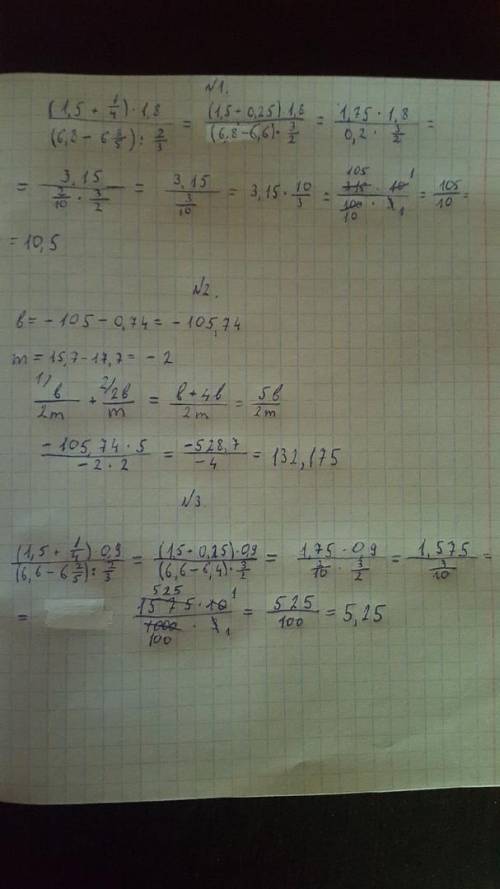 №1.
(1,5 + 1/4) · 1,8 / (6,8 − 6 3/5) : 2/3 = (1,5 + 0,25) 1,8 / (6,8 − 6,6) · 3/2 = 1,75 · 1,8 / 0,2 · 3/2 =
= 3,15 / 2/10 · 3/2 = 3,15 / 3/10 = 3,15 · 10/3 = 105 315 · 10 1 / 100 10 · 3 1 = 105/10 =
= 10,5
№2.
b = − 105 − 0,74 = − 105,74
m = 15,7 − 17,7 = − 2
1) b/2m + 2) 2b/m = b + 4b / 2m = 5b/2m
− 105,74 · 5 / − 2 · 2 = −528,7 / −4 = 132,175
№3
(1,5 + 1/4) 0,9 / (6,6 − 6 2/5) : 2/3 = (1,5 + 0,25) · 0,9 / (6,6 − 6,4) · 3/2 = 1,75 · 0,9 / 2/10 · 3/2 = 1,575 / 3/10 =
= 525 1575 · 10 1 / 1000 100 · 3 1 = 525/100 = 5,25